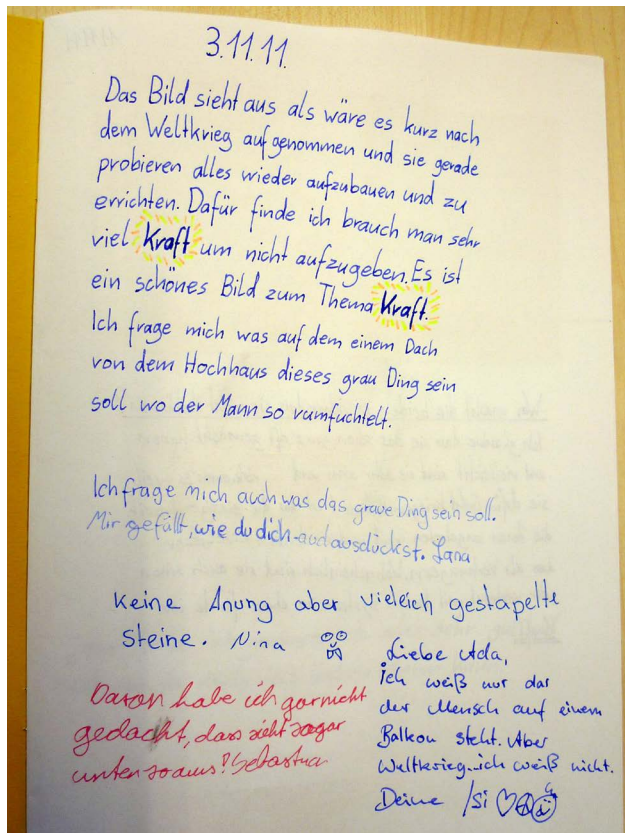 3.11.11.
Das Bild sieht aus als wäre es kurz nach
dem Weltkrieg aufgenommen und sie gerade
probieren alles wieder aufzubauen und zu
errichten. Dafür finde ich brauch man sehr
viel Kraft um nicht aufzugeben. Es ist
ein schönes Bild zum Thema Kraft.
Ich frage mich was auf dem einem Dach
von dem Hochhaus dieses grau Ding sein
soll wo der Mann so rumfuchtelt.
Ich frage mich auch was das graue Ding sein soll.
Mir gefällt, wie du dich ausdückst. Lana
Keine Anung aber vieleich gestapelte
Steine. Nina
Daran habe ich garnicht
gedacht, dass sieht sogar
unten so aus! Sebastian
Liebe Ada,
ich weiß nur das
der Mensch auf einem
Balkon steht. Aber
Weltkrieg...ich weiß nicht.
Deine Isi